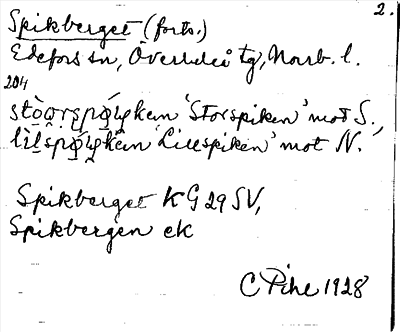 Spikberget (forts.) 2.
Edefors sn, Överluleå tg, Norrb. l.
204
'Storspiken' mot S.,
'Lillspiken' mot N.
Spikberget KG 29 SV,
Spikbergen ek
C Pihl 1928